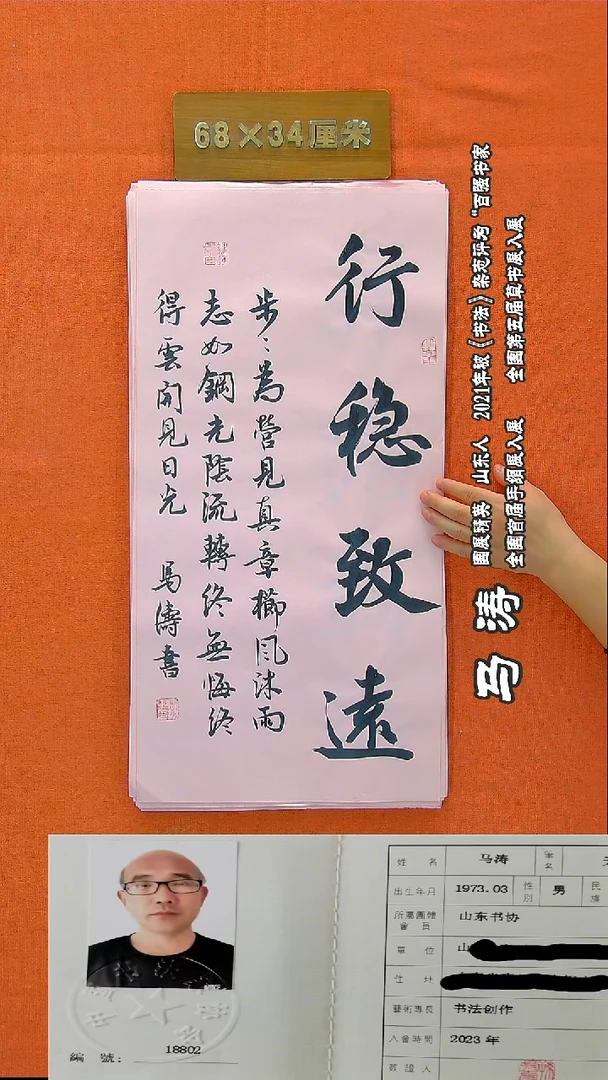 68×34厘米
行稳致遠
步〻為營見真章櫛风沐雨
志如鋼光陰流轉終無悔终
得雲開見日光 馬濤書
马涛
国展精英 山东人 2021年被《书法》杂志评为"百强书家
全国首届手绢展入展 全国第五届草书展入展
姓 名 马涛 筆名
出生年月 1973.03 性別 男 民族
所屬團體會員 山东书协
單 位 山
住 址
藝術專長 书法创作
入會時間 2023年
簽證人
編 號: 18802